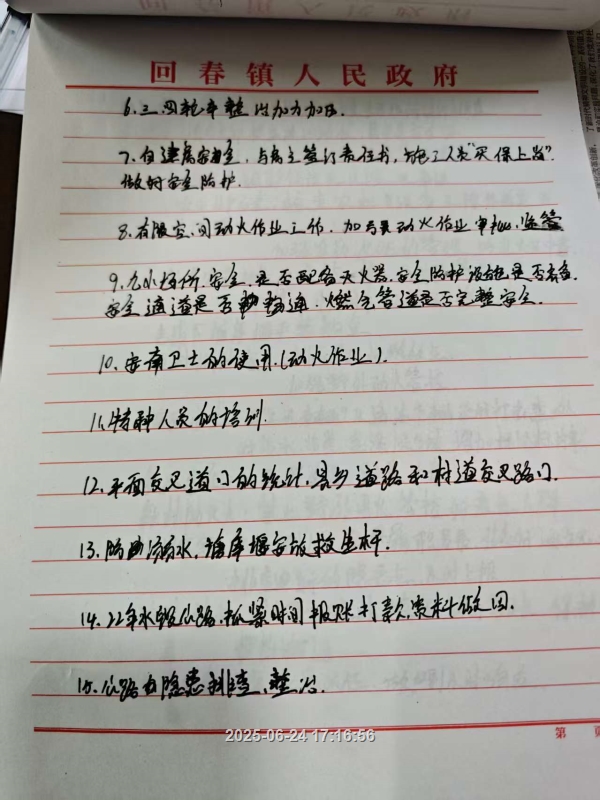 回春镇人民政府
6.三回轮车整治加力加压
7.自建房安全,与房主签订责任书,施工人员"买保上路".
做好安全防护.
8.有限空间动火作业工作,加强动火作业审批、监管
9.九小场所安全,是否配备灭火器,安全防护设施是否齐备,
安全通道是否畅通,燃气管道是否完整安全.
10.安南卫士的使用.(动火作业).
11.特种人员的培训.
12.平面交叉道口的统计,县乡道路和村道交叉路口.
13.防出溺水,塘库堰安放救生杆.
14.22年水毁公路,抓紧时间报账打款,资料做回.
15.公路的隐患排查、整治.
2025-06-24 17:16:56
第